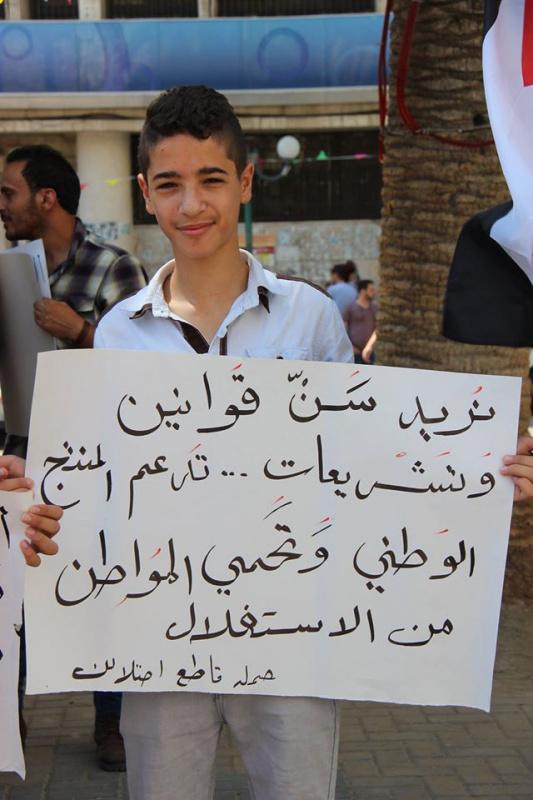 نُريد سَنّ قَوانين
وَتَشْريعات ... تَدعم المنتج
الوَطني وَتَحَمي المُواطن
من الاستغلال
حملة قاطع احتلالك